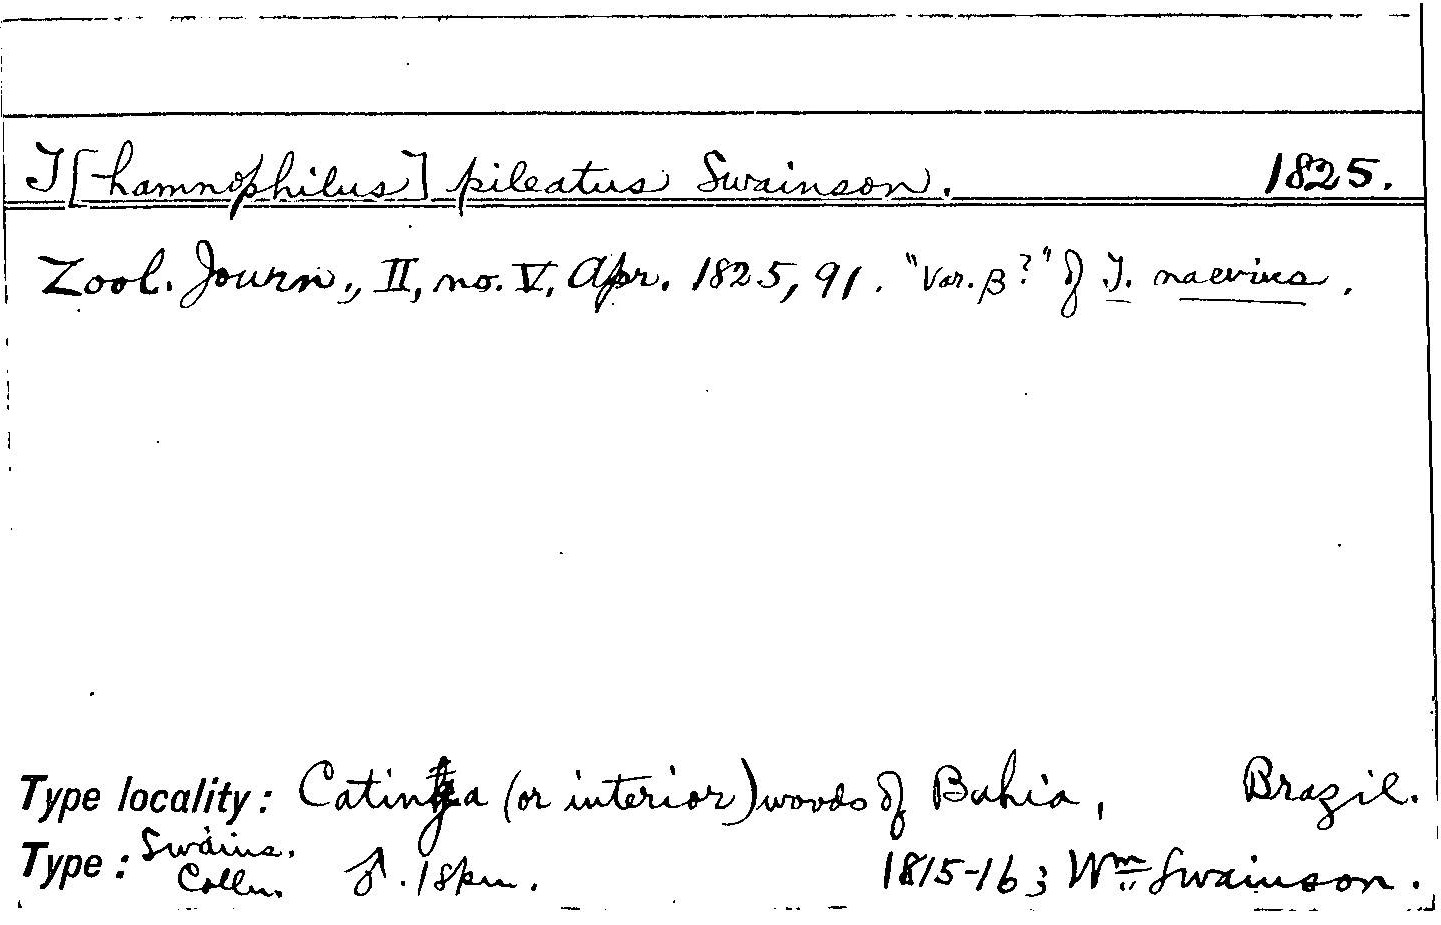 T[hamnophilus] pileatus Swainson. 1825.
Zool. Journ., II, no. V, Apr. 1825, 91. "Var. β?" of T. naevius.
Type locality: Catinga (or interior) woods of Bahia, Brazil.
Type: Swains. Colln. ♂. 1 spm. 1815-16; Wm Swainson.